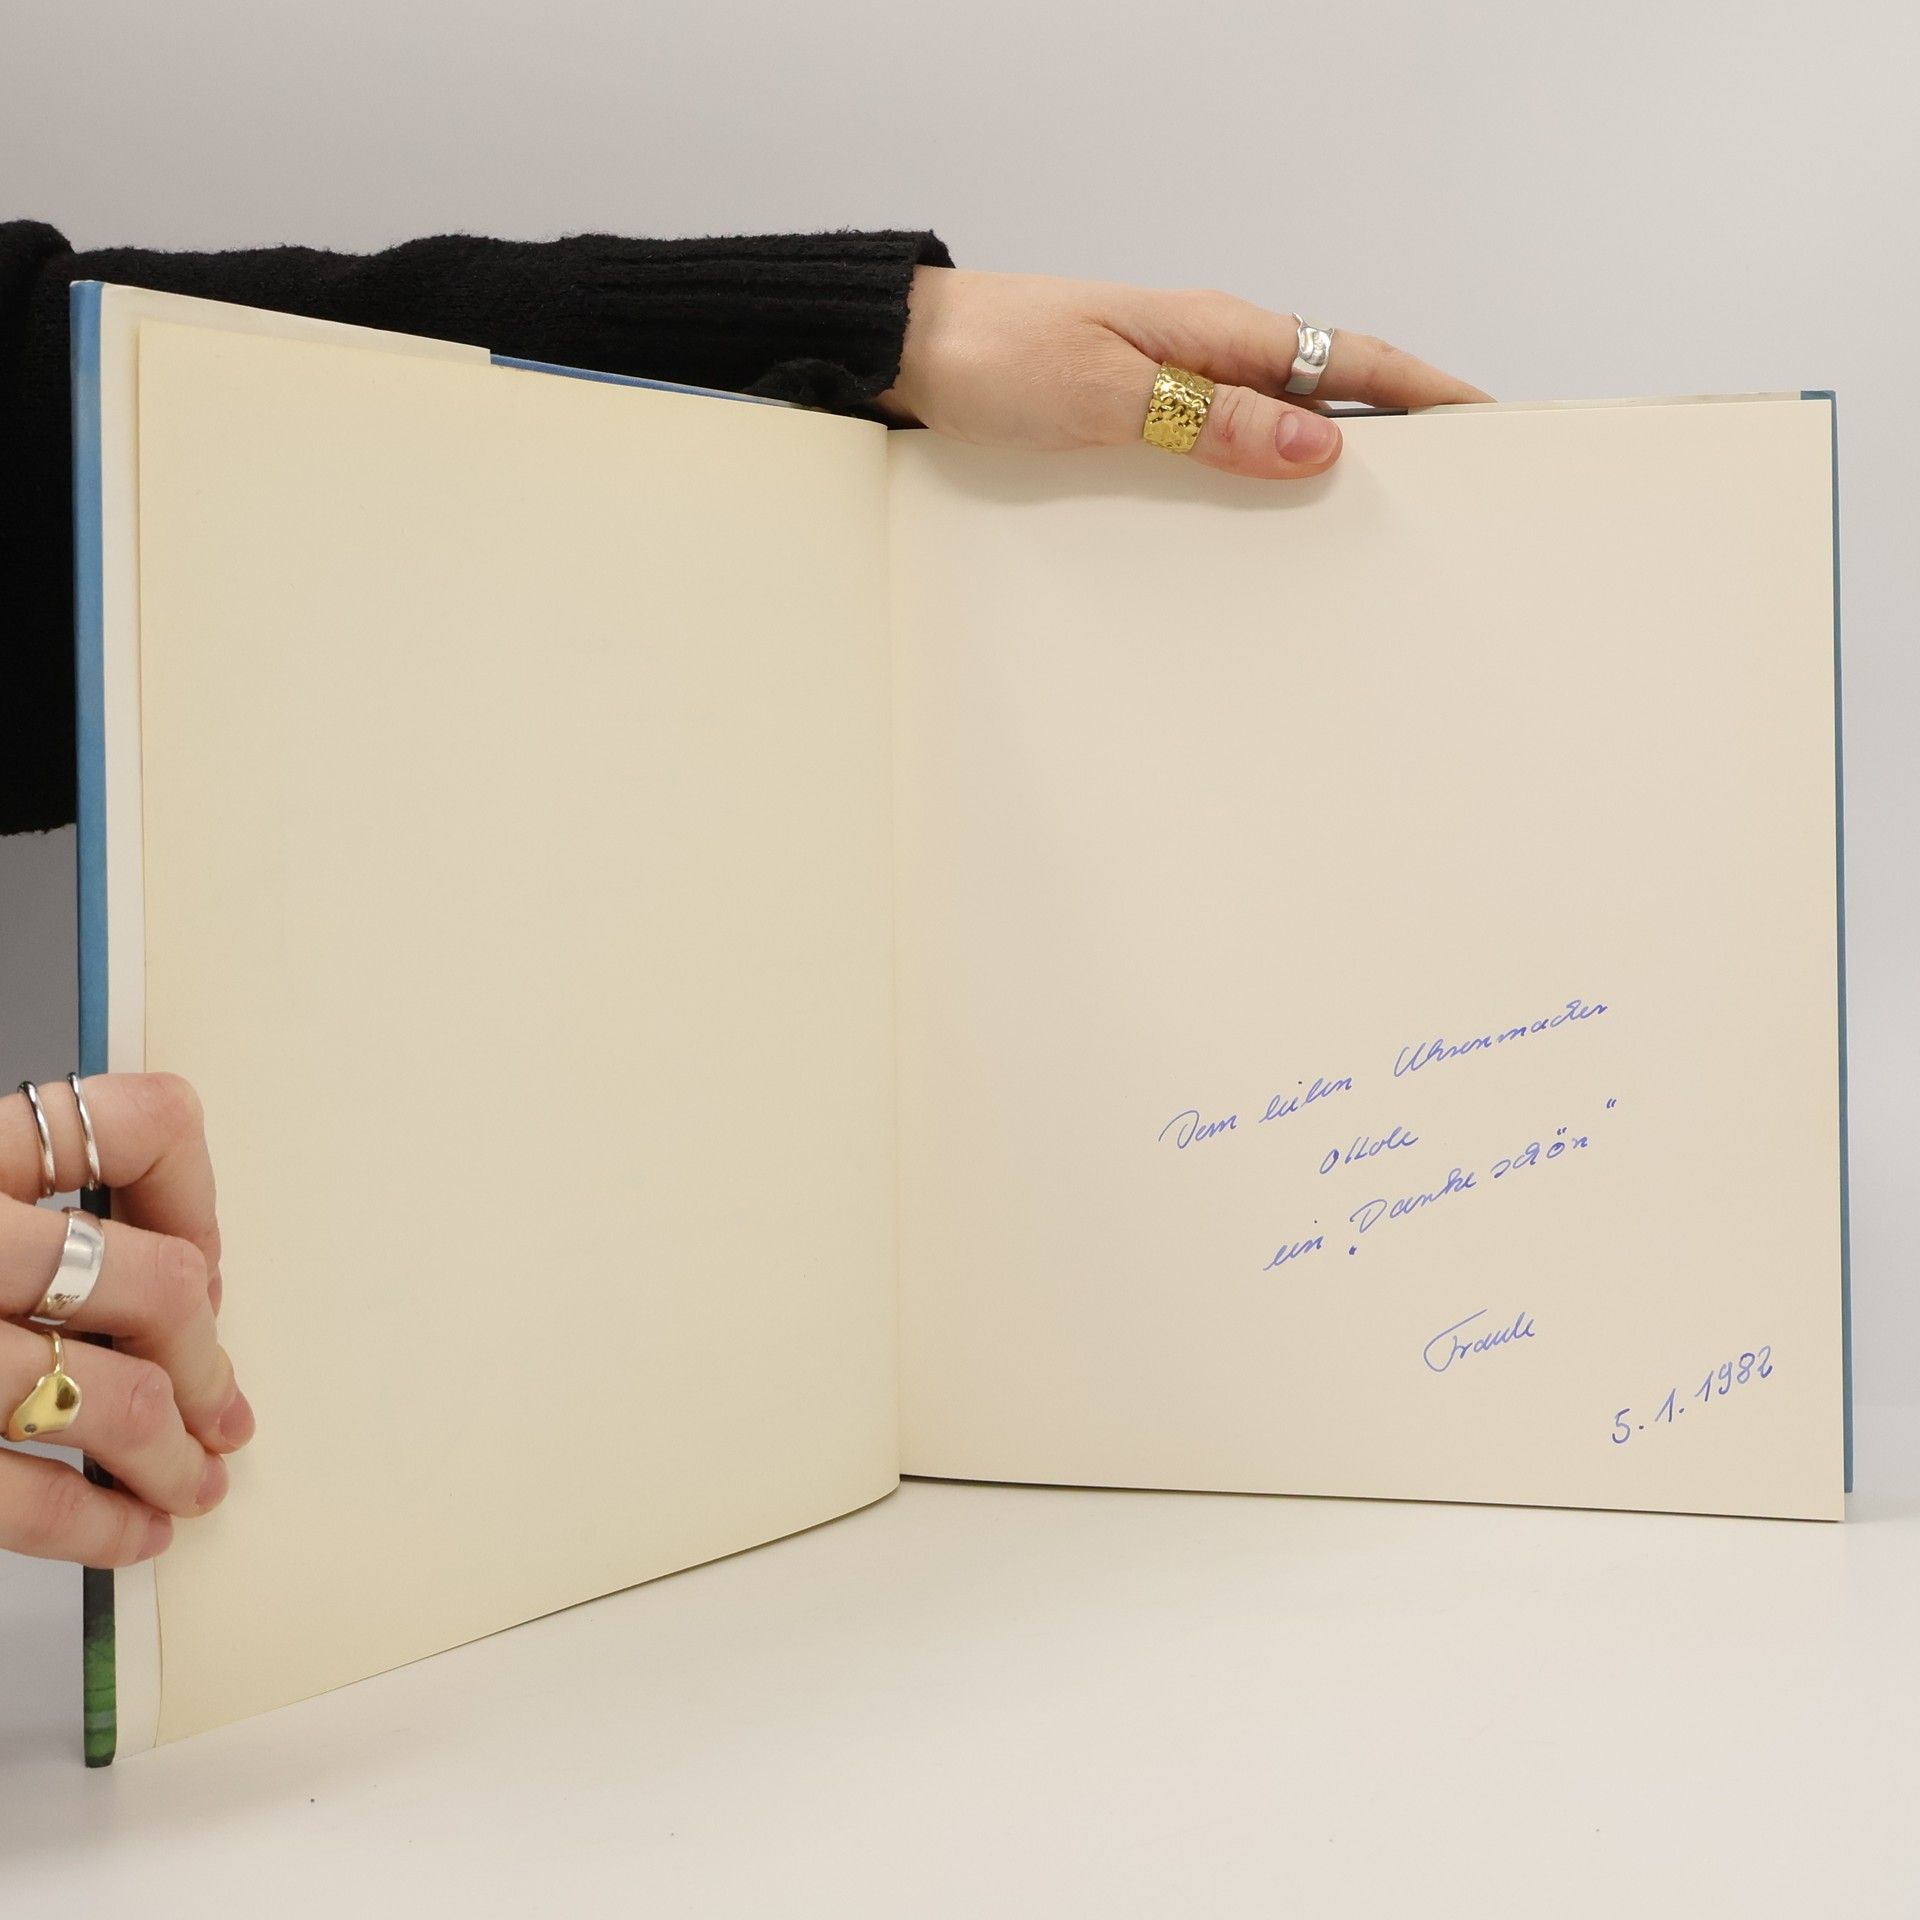 Dem lieben Uhrenmacher
ein „Dankeschön“
Frauke
5.1.1982